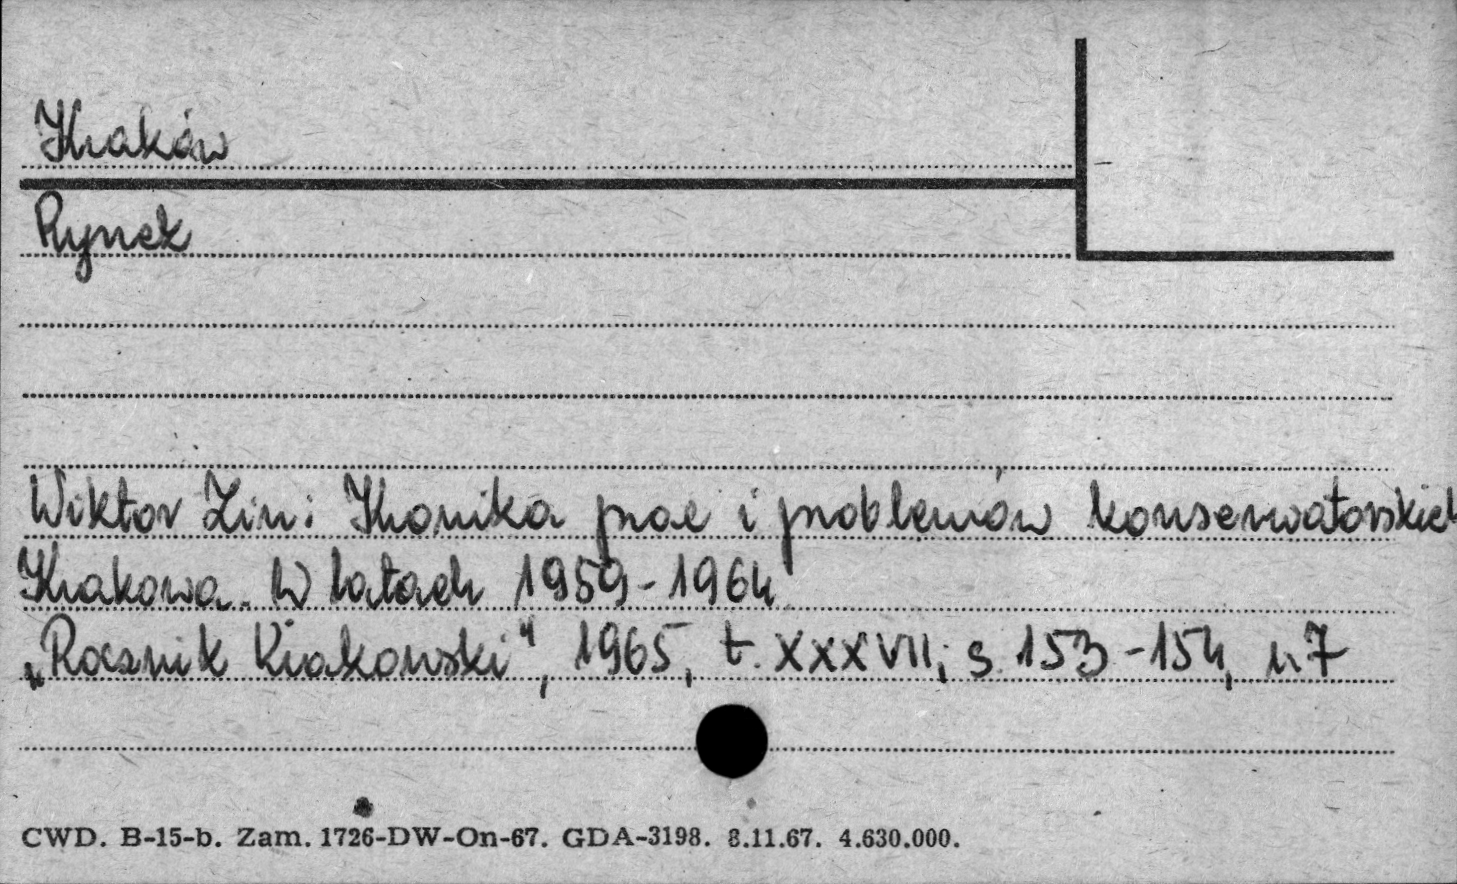 Kraków
Rynek
Wiktor Zin: Kronika prac i problemów konserwatorskich
Krakowa. W latach 1959-1964
„Rocznik Krakowski", 1965, t. XXXVII; s. 153-154, il. 7
CWD. B-15-b. Zam. 1726-DW-On-67. GDA-3198. 8.11.67. 4.630.000.